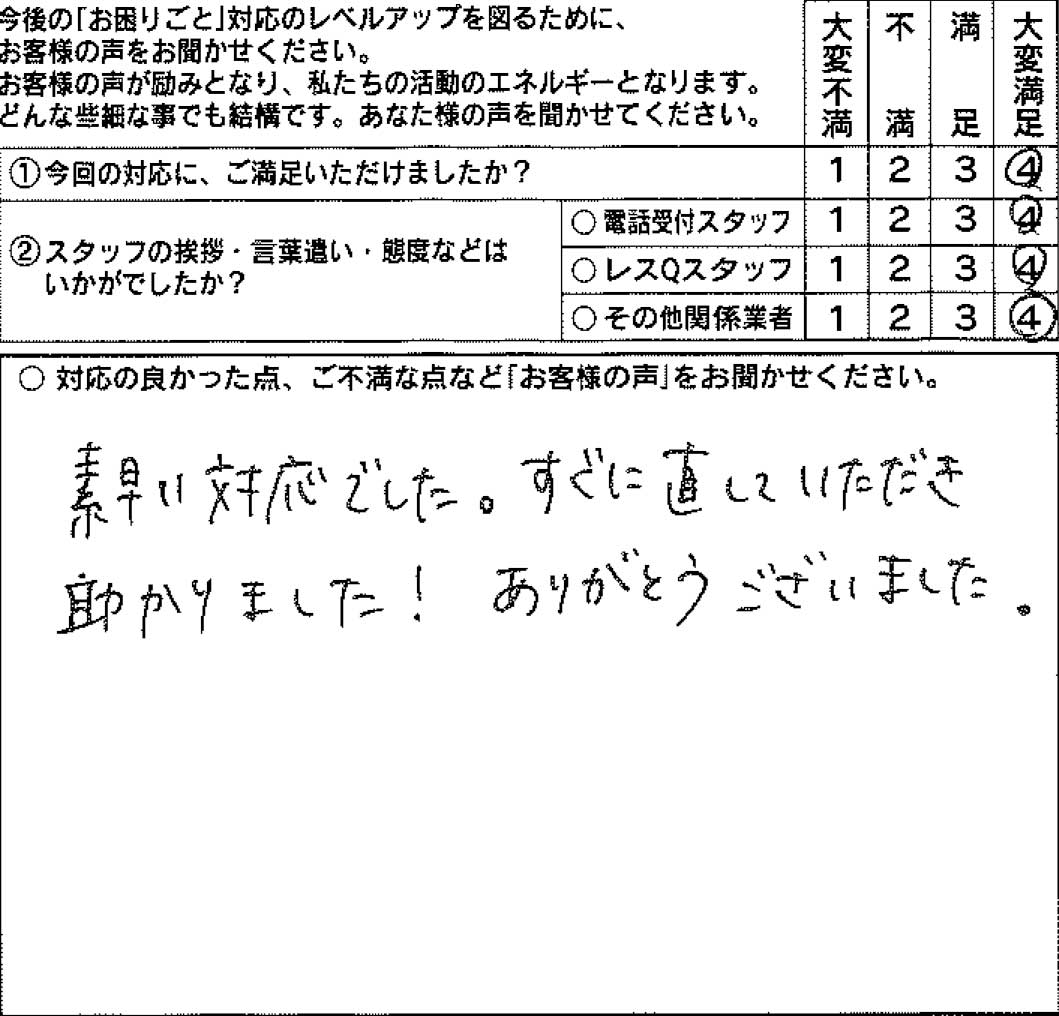 今後の「お困りごと」対応のレベルアップを図るために、
お客様の声をお聞かせください。
お客様の声が励みとなり、私たちの活動のエネルギーとなります。
どんな些細な事でも結構です。あなた様の声を聞かせてください。
大変不満 不満 満足 大変満足
①今回の対応に、ご満足いただけましたか？ 1 2 3 4
②スタッフの挨拶・言葉遣い・態度などは
いかがでしたか？
○電話受付スタッフ 1 2 3 4
○レスQスタッフ 1 2 3 4
○その他関係業者 1 2 3 4
○ 対応の良かった点、ご不満な点など「お客様の声」をお聞かせください。
素早い対応でした。すぐに直していただき
助かりました！ ありがとうございました。